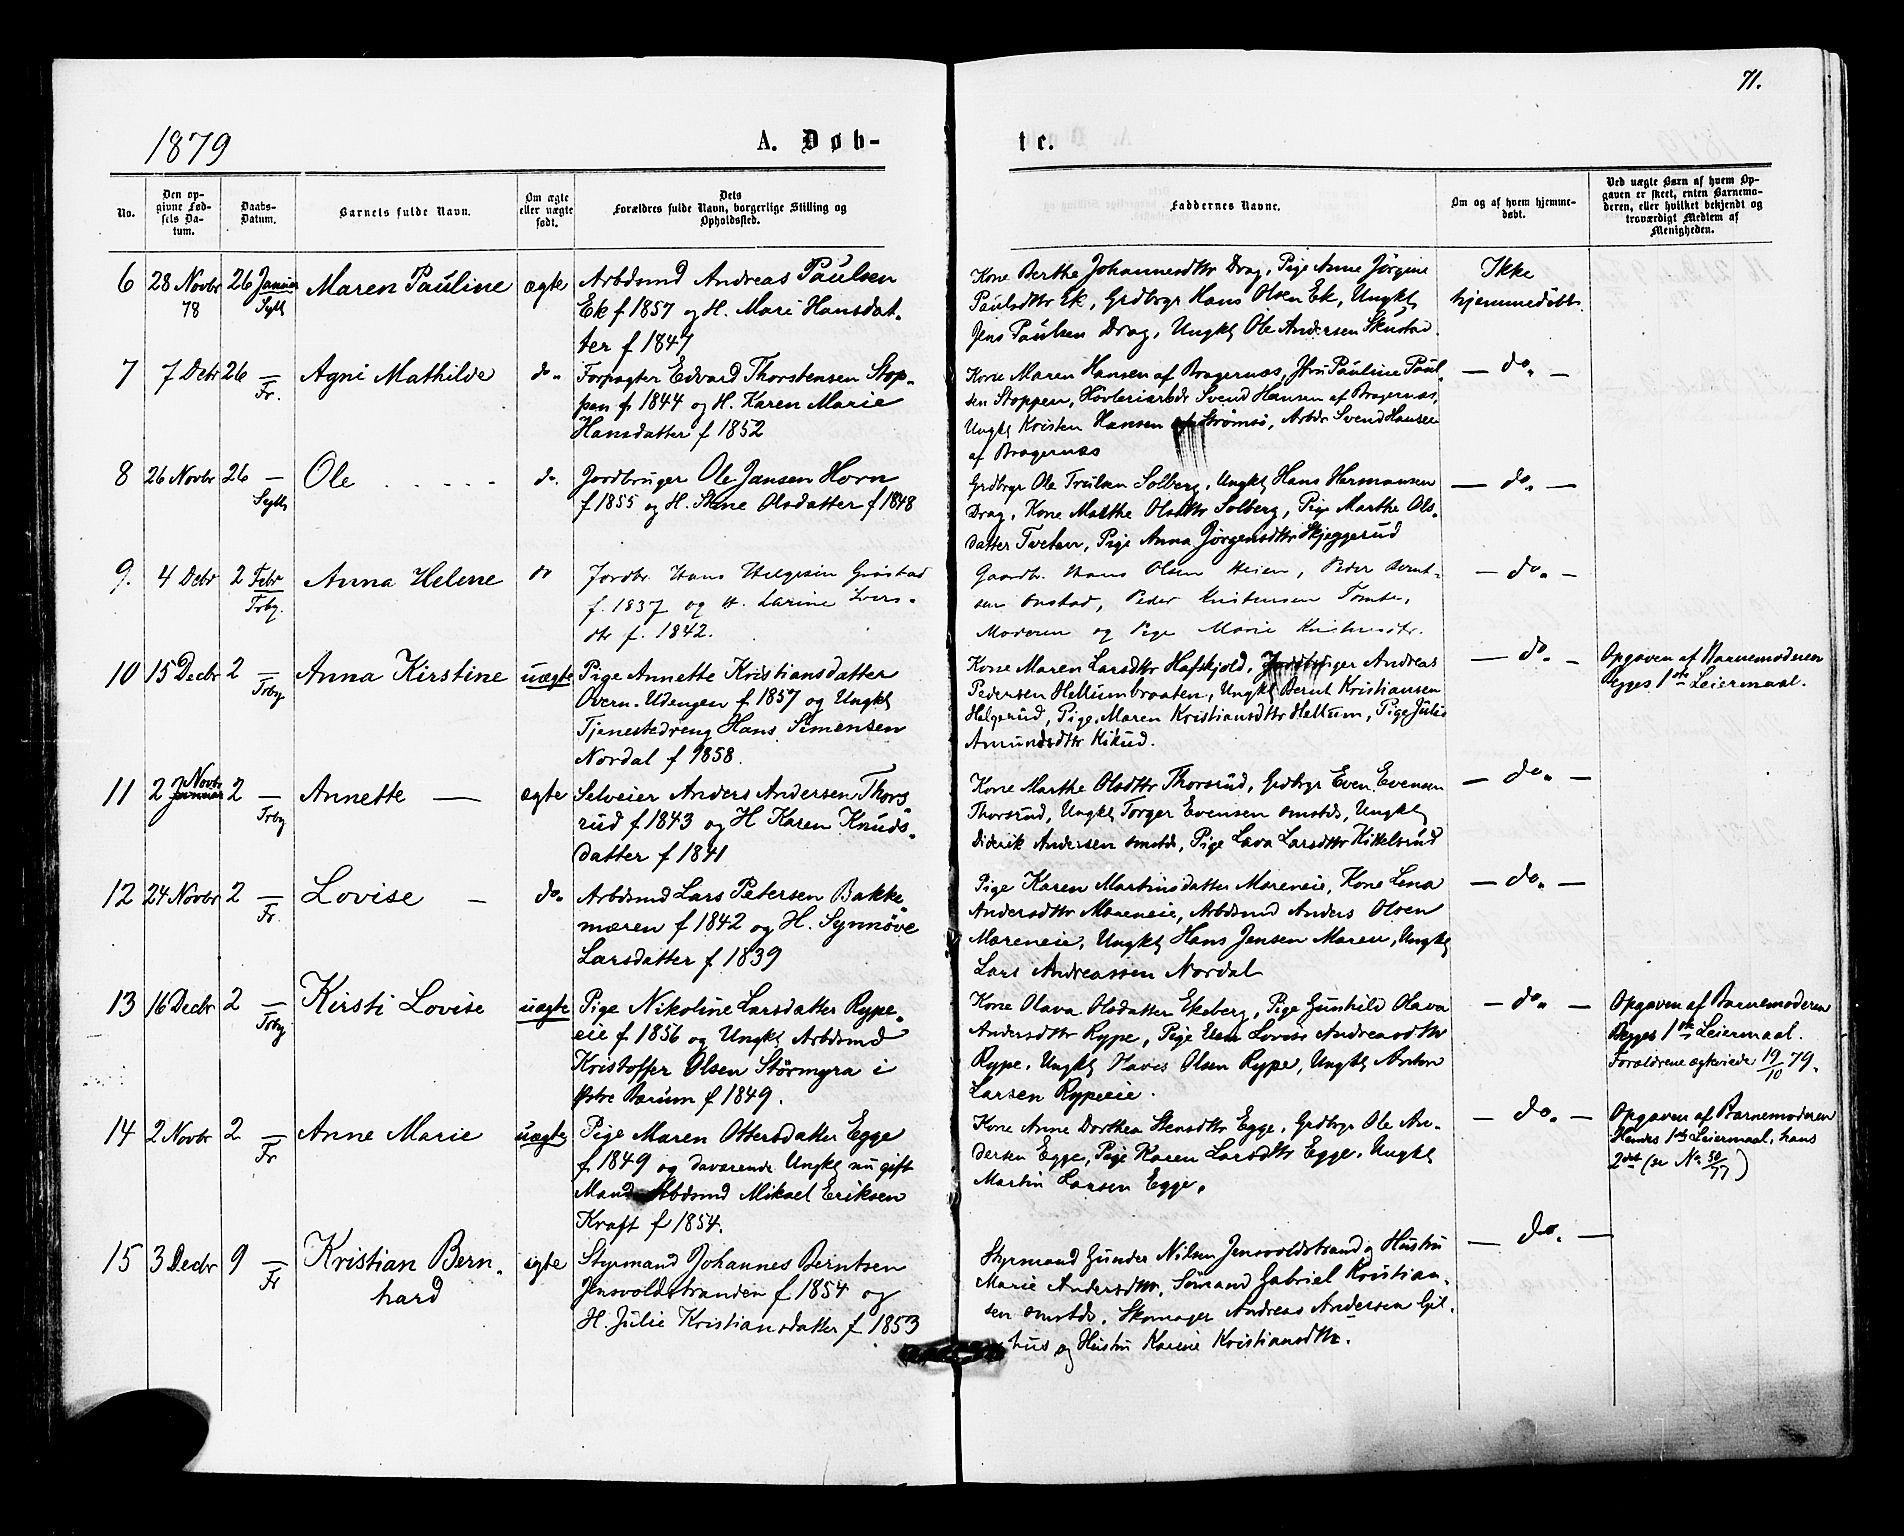 71.
1879
A. Døb-
te.
No.
Den op-
givne Fød-
sels Da-
tum.
Daabs-
Datum.
Barnets fulde Navn.
Om ægte
eller uægte
født.
Dets
Forældres fulde Navn, borgerlige Stilling og
Opholdssted.
Faddernes Navne.
Om og af hvem hjemme-
døbt.
Ved uægte Børn af hvem Op-
gaven er skeet, enten Barnemo-
deren, eller hvilket bekjendt og
troværdigt Medlem af
Menigheden.
6 28 Novbr 78 26 Januar Sylh Maren Pauline ægte
Arbdsmd Andreas Paulsen
Ek f 1857 og H. Mari Hansdat-
ter f 1847
Kone Berthe Johannesdttr Drag, Pige Anne Jørgine
Paulsdttr Ek, Grdbrgr Hans Olsen Ek, Ungkl
Jens Paulsen Drag, Ungkl Ole Andersen Skustad.
Ikke
hjemmedöbt.
7 7 Debr 26 — Fr. Agni Mathilde do.
Forpagter Edvard Thorstensen Stop-
pen f. 1844 og H. Karen Marie
Hansdatter f 1852
Kone Maren Hansen af Bragernæs, Jfru Pauline Paul-
sen Stoppen, Høvleriarbdr Svend Hansen af Bragernæs,
Ungkl Kristen Hansen af Strømsö, Arbdr Svend Hansen
af Bragernæs
— do. —
8 26 Novbr 26 — Sylh Ole do.
Jordbruger Ole Jansen Horn
f 1855 og H. Stine Olsdatter f 1848
Grdbrgr Ole Trulsen Solberg, Ungkl Hans Hermansen
Drag, Kone Marthe Olsdttr Solberg, Pige Marthe Ols-
datter Tveten, Pige Anna Jørgensdttr Skjeggerud
— do. —
9. 4 Debr 2 Febr Frby. Anna Helene do
Jordbr. Hans Helgesen Grøstad
f. 1837 og H. Larine Ivers-
dtr f. 1842.
Gaardbr. Hans Olsen Heien, Peder Bernt-
sen Onstad, Peder Kristensen Tomte,
Moderen og Pige Marie Kristensdtr.
— do. —
10 15 Decbr 2 — Frby Anna Kirstine uægte
Pige Annette Kristiansdatter
Overn. Udengen f 1857 og Ungkl
Tjenestedreng Hans Simensen
Nordal f 1858.
Kone Maren Larsdttr Hafskjold, Jordbruger Andreas
Pedersen Hellumbraaten, Ungkl Bernt Kristiansen
Helgerud, Pige Maren Kristiansdttr Hellum, Pige Julie
Amundsdttr Kikud.
— do. —
Opgaven af Barnemoderen
Begges 1ste Leiermaal.
11 2 Novbr 2 — Frby Annette — ægte
Selveier Anders Andersen Thors-
rud f 1843 og H Karen Knuds-
datter f 1841
Kone Marthe Olsdttr Thorsrud, Grdbrgr Even Evensen
Thorsrud, Ungkl Torger Evensen omstds, Ungkl
Diderik Andersen omstds, Pige Lava Larsdttr Kittelsrud
— do. —
12 24 Novbr 2 — Fr. Lovise — do.
Arbdsmd Lars Petersen Bakke-
mæren f 1842 og H. Synnöve
Larsdatter f 1839
Pige Karen Martinsdatter Mæreneie, Kone Lena
Andersdttr Mæreneie, Arbdsmd Anders Olsen
Mæreneie, Ungkl Hans Jensen Maren, Ungkl
Lars Andreassen Nordal
— do. —
13 16 Decbr 2 — Frby Kirsti Lovise uægte
Pige Nikoline Larsdatter Rype-
eie f 1856 og Ungkl Arbdsmd
Kristoffer Olsen Störmyra i
Østre Bærum f 1849.
Kone Olava Olsdatter Ekeberg, Pige Gunhild Olava
Andersdttr Rype, Pige Lovise Andreasdttr
Rype, Ungkl Olsen Rype, Ungkl Anton
Larsen Rypeeie.
— do. —
Opgaven af Barnemoderen
Begges 1ste Leiermaal.
Forældrene ægteviede 19/10 79.
14 2 Novbr 2 — Fr Anne Marie uægte
Pige Maren Ottersdatter Egge
f 1849 og daværende Ungkl nu gift
Mand Arbdsmd Mikael Eriksen
Kraft f 1854.
Kone Anne Dorthea Stensdttr Egge, Grdbrgr Ole An-
dersen Egge, Pige Karen Larsdttr Egge, Ungkl
Martin Larsen Egge.
— do. —
Opgaven af Barnemoderen
Hendes 1ste Leiermaal, hans
2det (se No 50/77)
15 3 Decbr 9 — Fr Kristian Bern-
hard ægte
Styrmand Johannes Berntsen
Jensvoldstranden f 1854 og
H. Julie Kristiansdatter f 1853
Styrmand Gunder Nilsen Jensvoldstrand og Hustru
Marie Andersdttr, Sömand Gabriel Kristian-
sen omstds, Skomager Andreas Andersen Gil-
hus og Hustru Karine Kristiansdttr.
— do. —